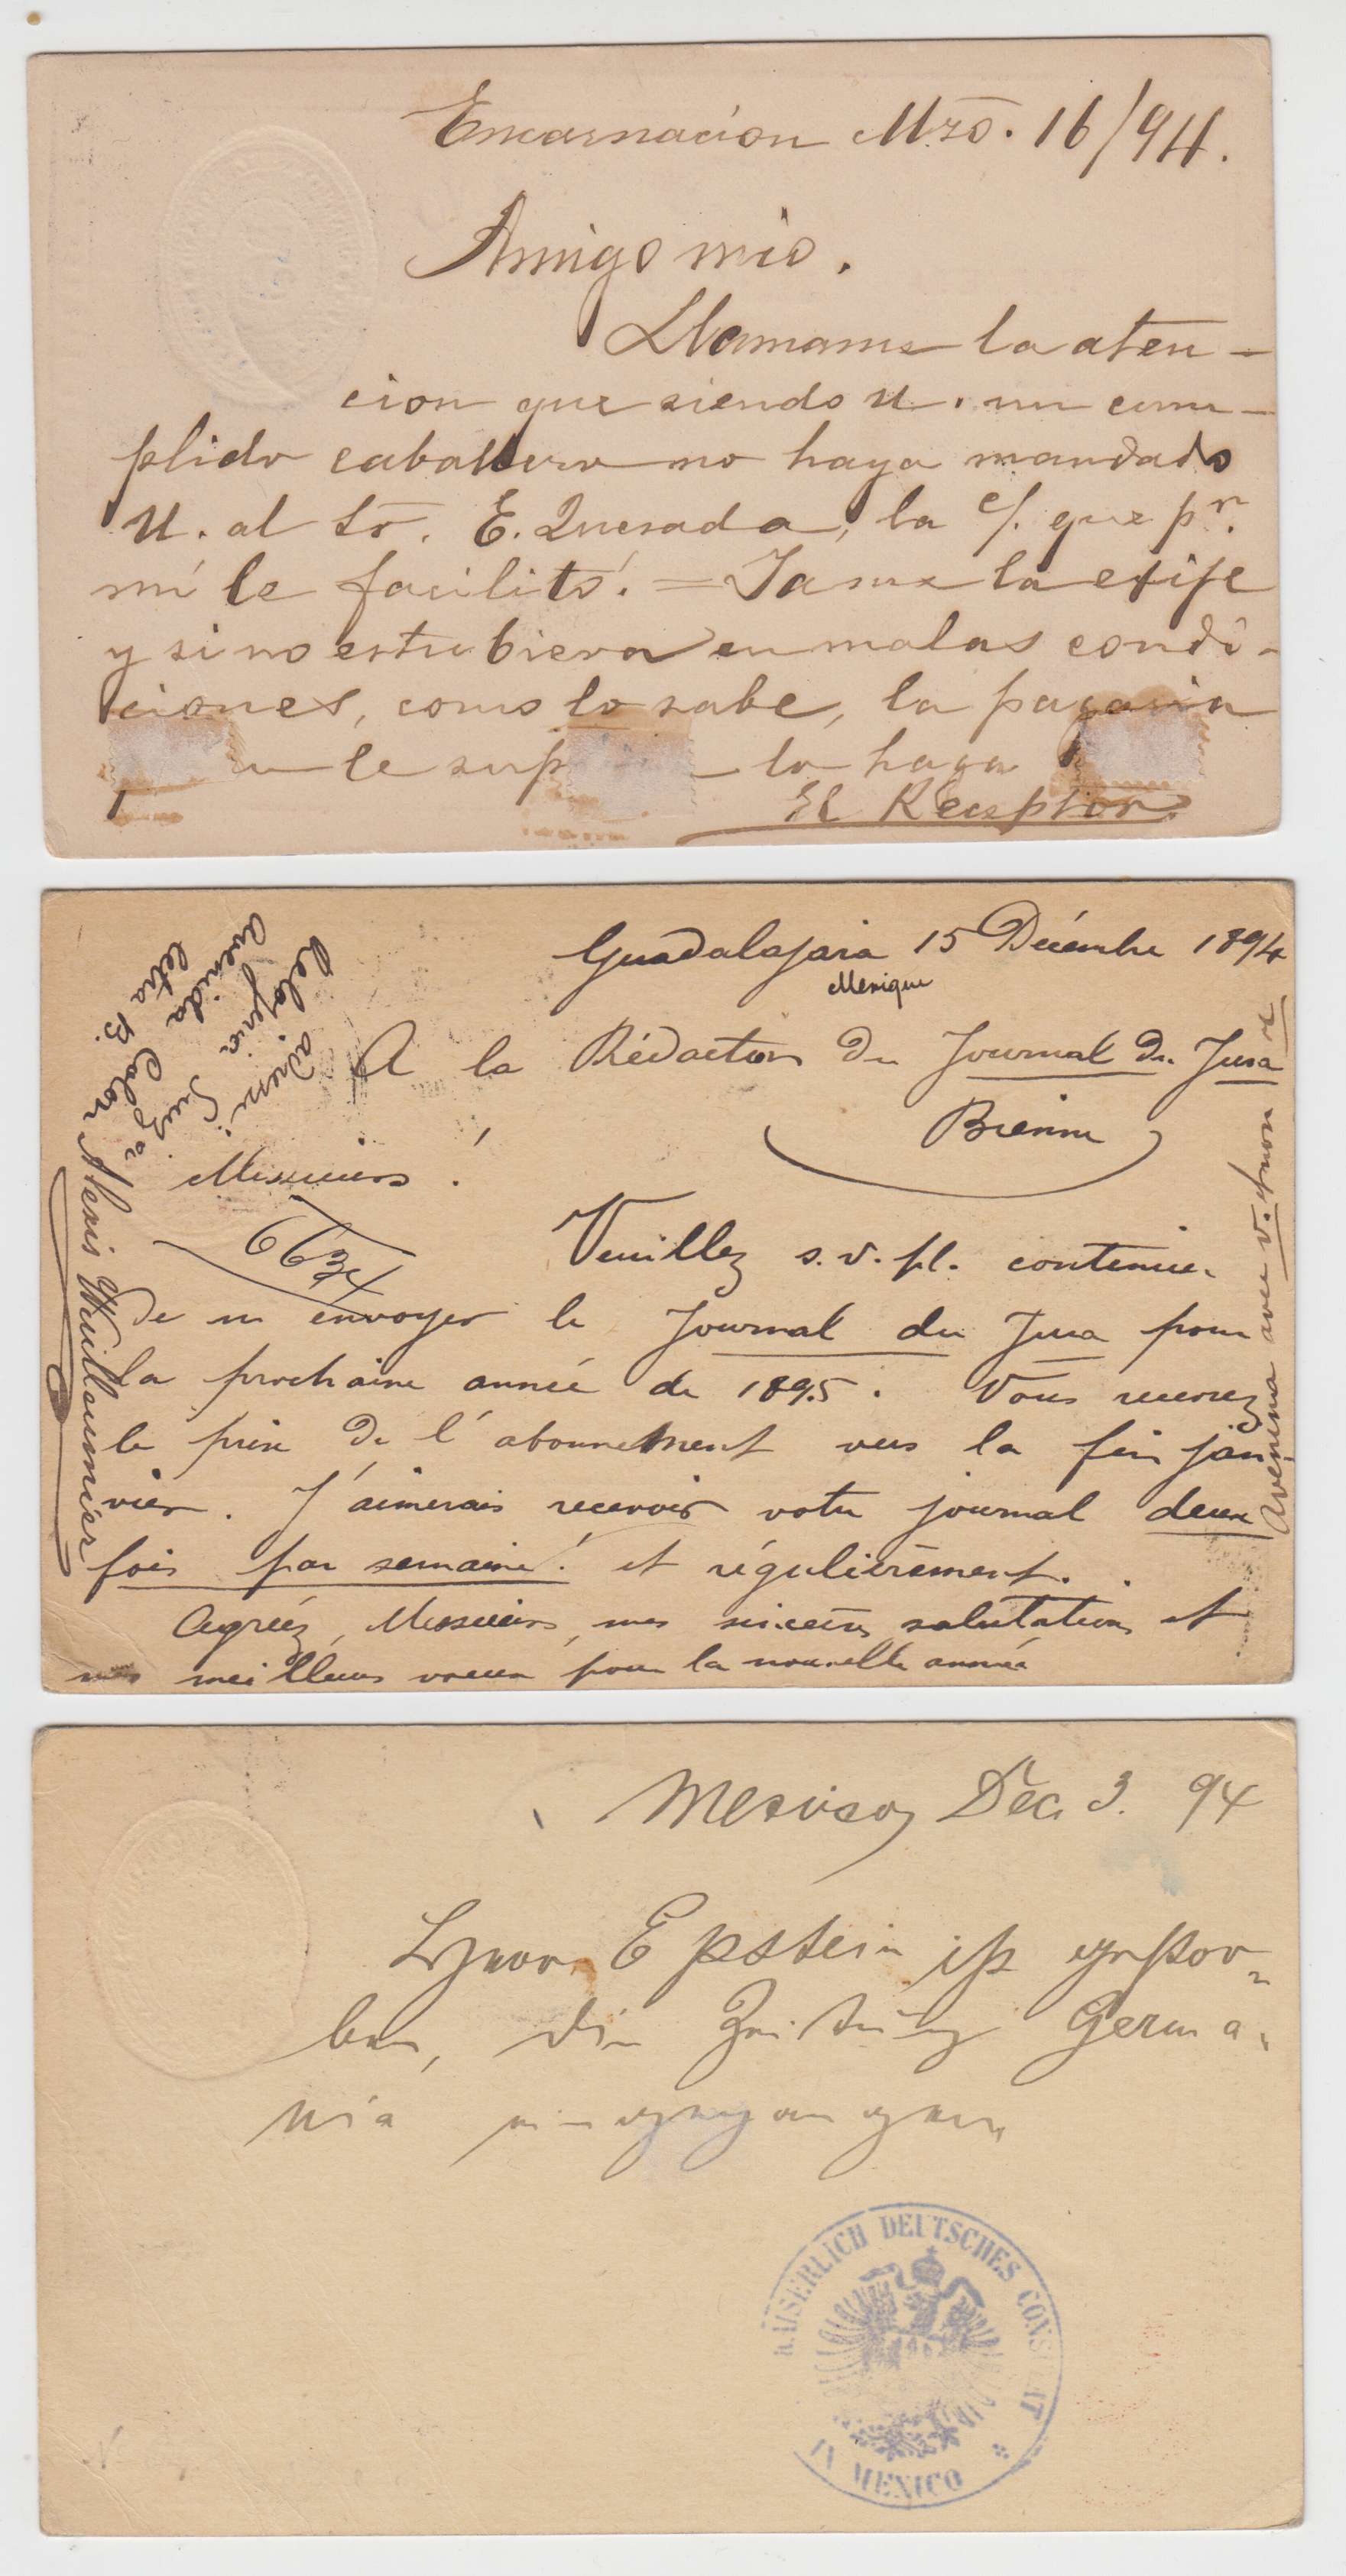 Encarnacion Mzō. 16/94.
Amigo mio.
Llamame la aten-
cion que siendo U. un cum-
plido caballero no haya mandado
U. al Sr̄. E. Quesada, la c/. que pr.
mí le facilitó. = Ya me la exije
y si no estubiera en malas condi-
ciones, como lo sabe, la pagaria
le sup lo haga
El Receptor.
Guadalajara 15 Décembre 1894
Mexique
A la Rédaction du Journal du Jura
Bienne
Messieurs !
6634
Veuillez s.v.pl. continuer
de m envoyer le Journal du Jura pour
la prochaine année de 1895. Vous recevrez
le prix de l'abonnement vers la fin jan
vier. J'aimerais recevoir votre journal deux
fois par semaine! et régulièrement.
Agréez, Messieurs, mes sincères salutations et
mes meilleurs voeux pour la nouvelle année
Alexis Wuilleumier
Relojeria Suiza
avenida Colon
letra B.
avec v. et non
Mexico, Dec. 3. 94
Herr Epstein ist gestor-
ben, die Zeitung Germa-
nia eingegangen
KAISERLICH DEUTSCHES CONSULAT
IN MEXICO